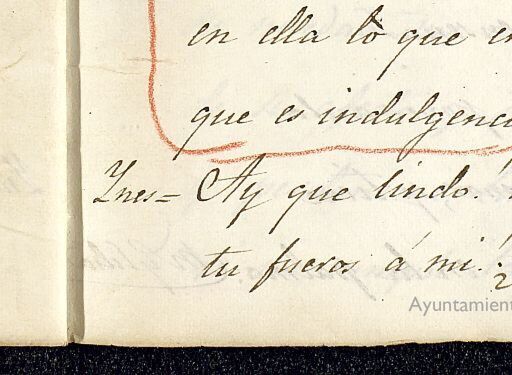 en ella lo que en
que es indulgenci
Ynes= Ay que lindo!
tu fueros á mi!
Ayuntamient